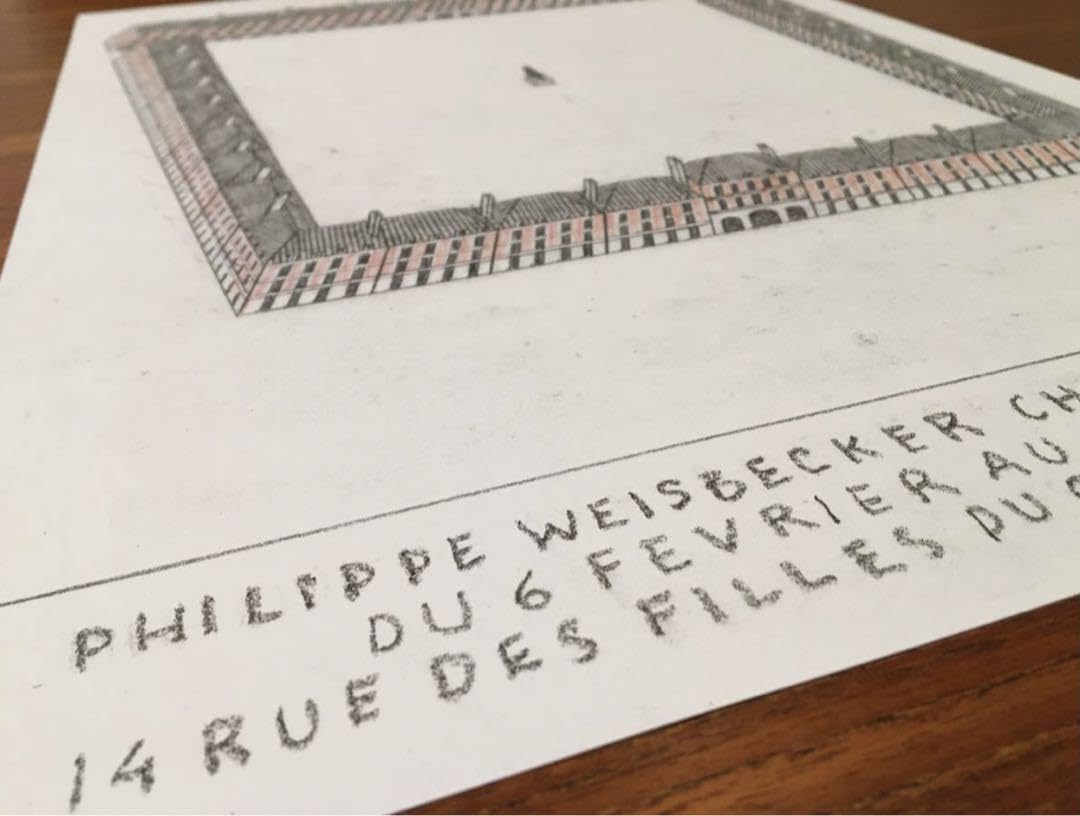 PHILIPPE WEISBECKER CH
DU 6 FEVRIER AU
14 RUE DES FILLES DU